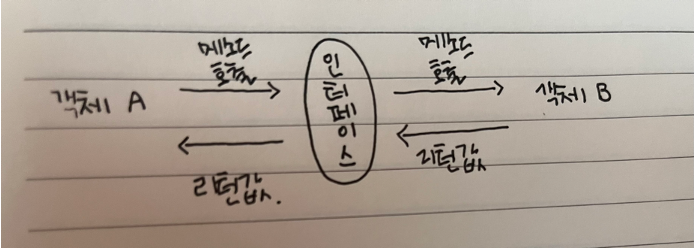 객체 A
메소드
호출
리턴값.
인터페이스
메소드
호출
리턴값
객체 B